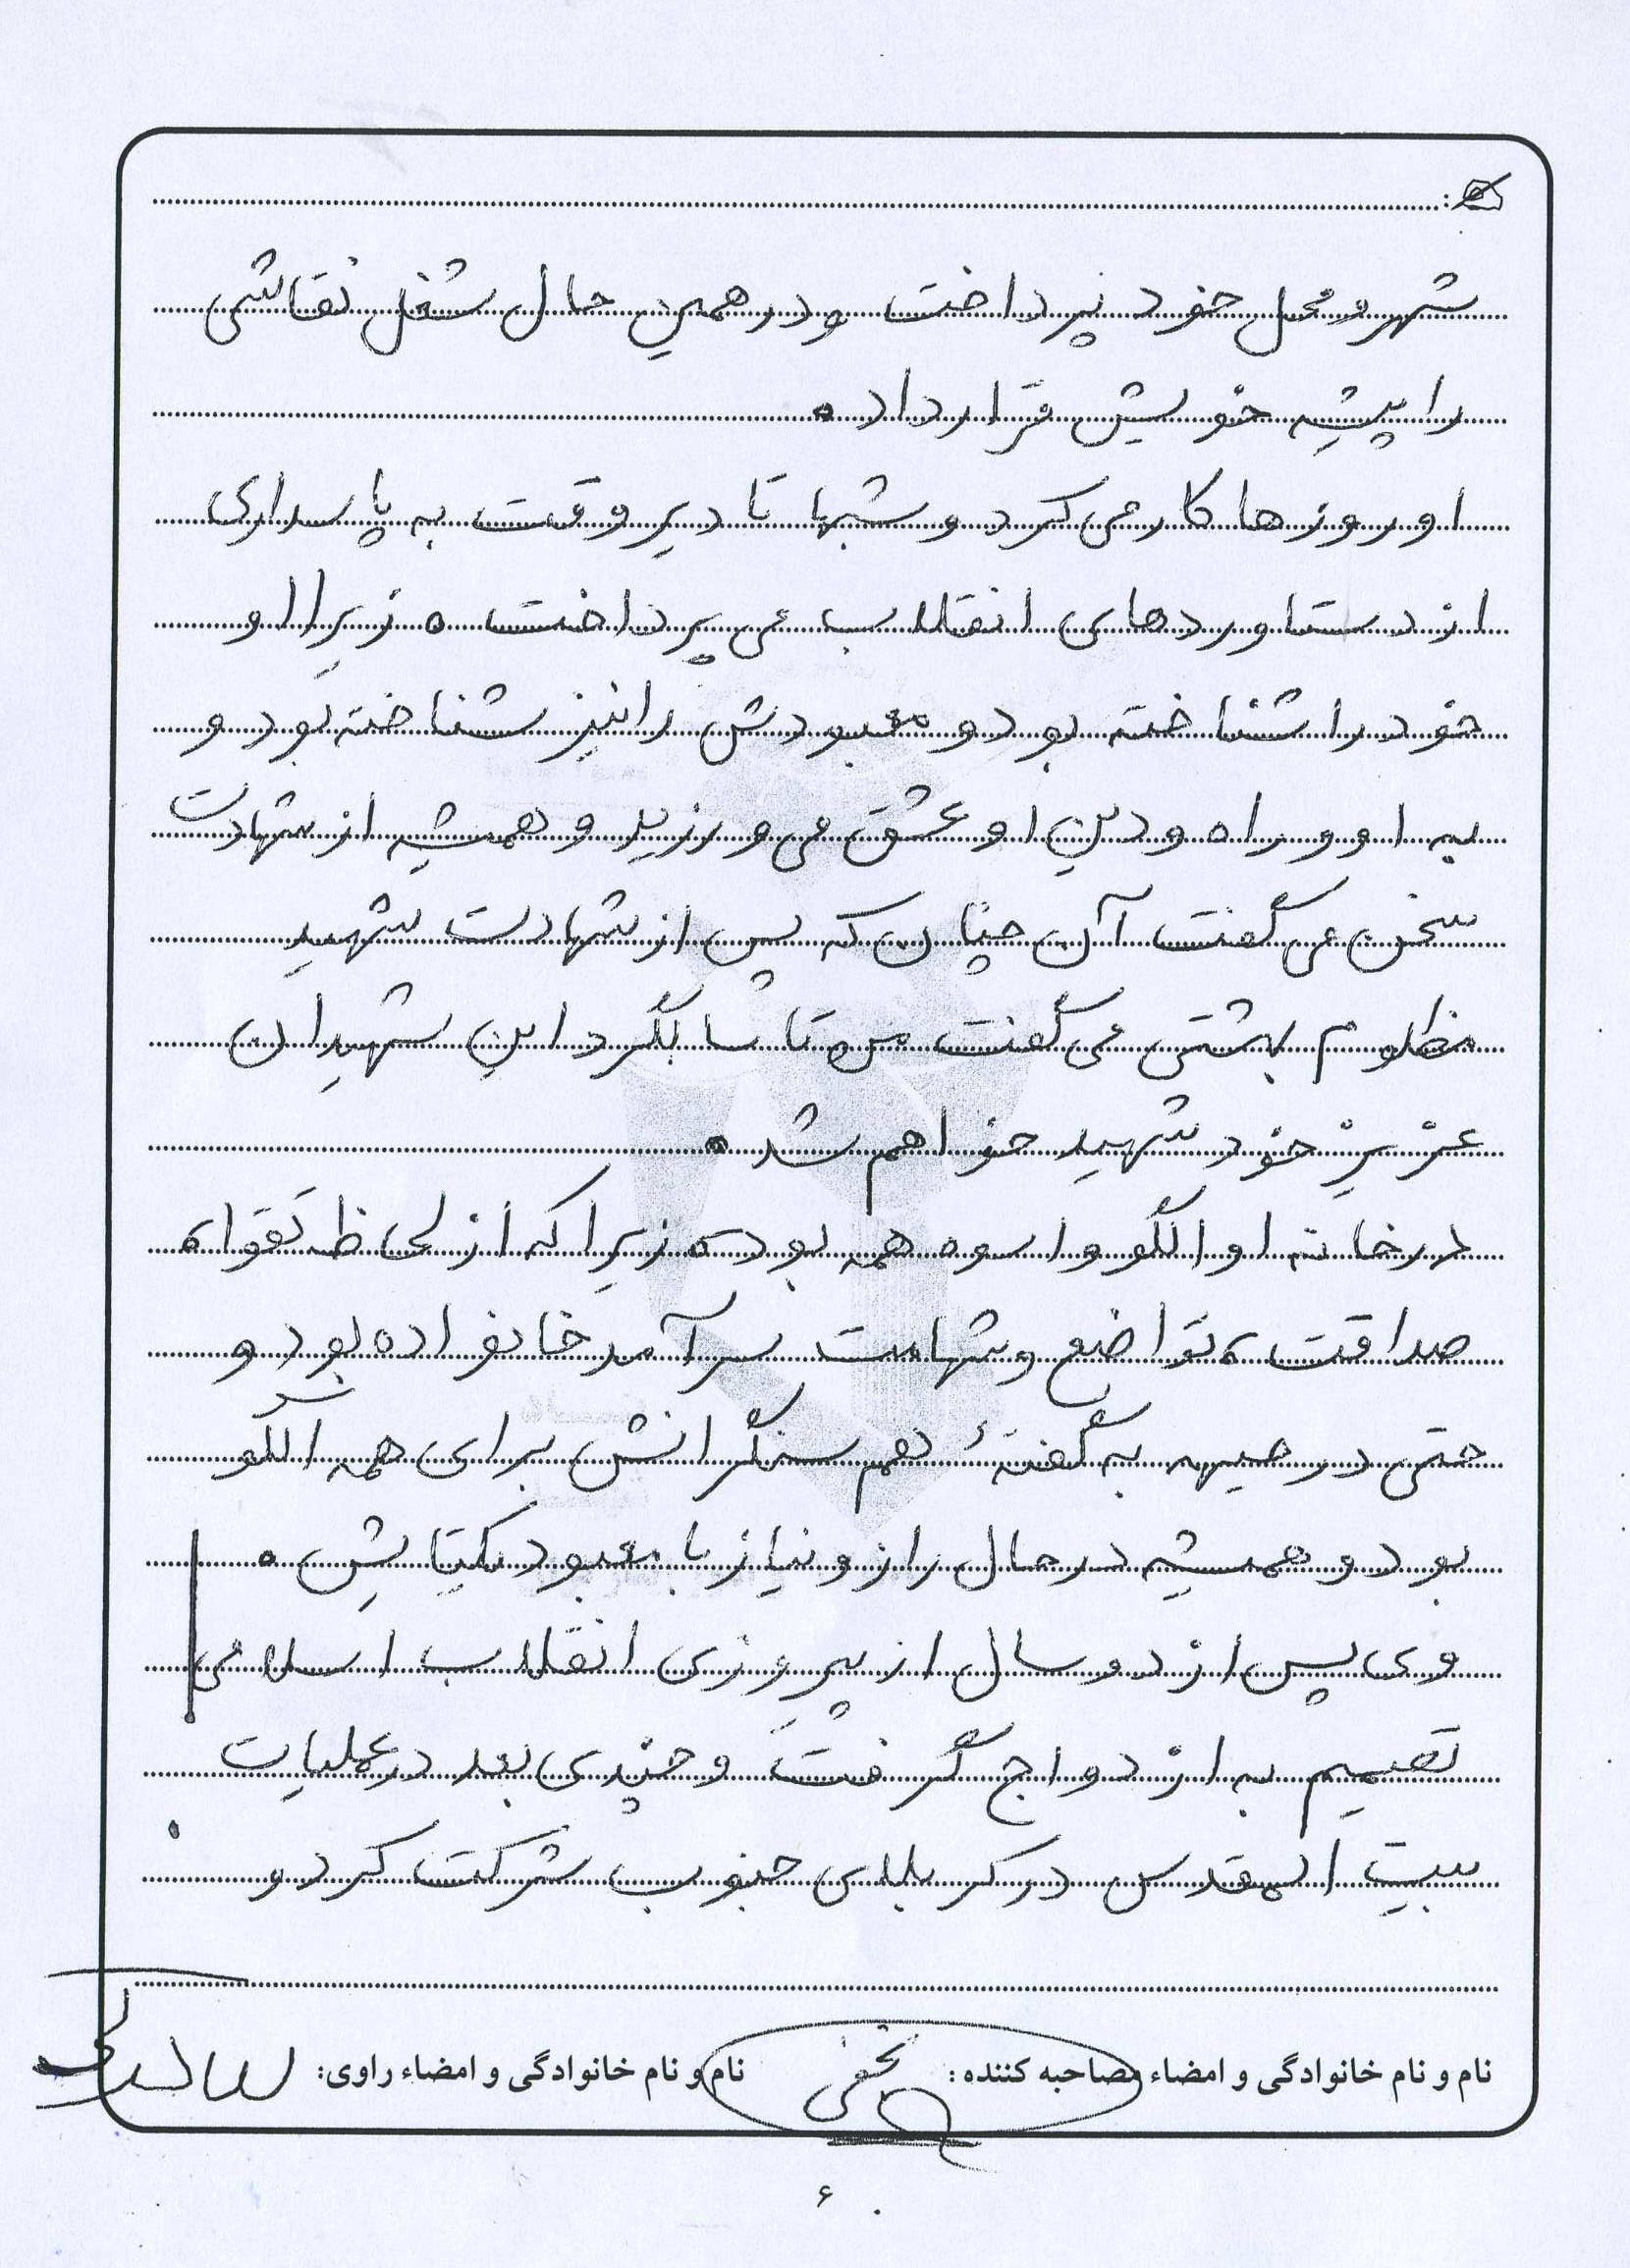 شهر و محل خود پرداخت و در همین حال شغل نقاشی
را پیشه خویش قرار داد.
او روزها کار می کرد و شبها تا دیر وقت به پاسداری
از دستاوردهای انقلاب می پرداخت. زیرا او
خود را شناخته بود و معبودش را نیز شناخته بود و
به او و راه و دین او عشق می ورزید و همیشه از شهادت
سخن می گفت آن چنان که پس از شهادت شهید
مظلوم بهشتی می گفت من تا سالگرد این شهیدان
عزیز خود شهید خواهم شد.
در خانه او الگو و اسوه همه بود. زیرا که از لحاظ تقوا،
صداقت، تواضع و شهامت سرآمد خانواده بود و
حتی در جبهه به گفتهٔ هم سنگرانش برای همه الگو
بود و همیشه در حال راز و نیاز با معبود یکتایش.
وی پس از دو سال از پیروزی انقلاب اسلامی
تصمیم به ازدواج گرفت و چندی بعد در عملیات
بیت المقدس در کربلای جنوب شرکت کرد و
نام و نام خانوادگی و امضاء مصاحبه کننده: نام و نام خانوادگی و امضاء راوی:
۶